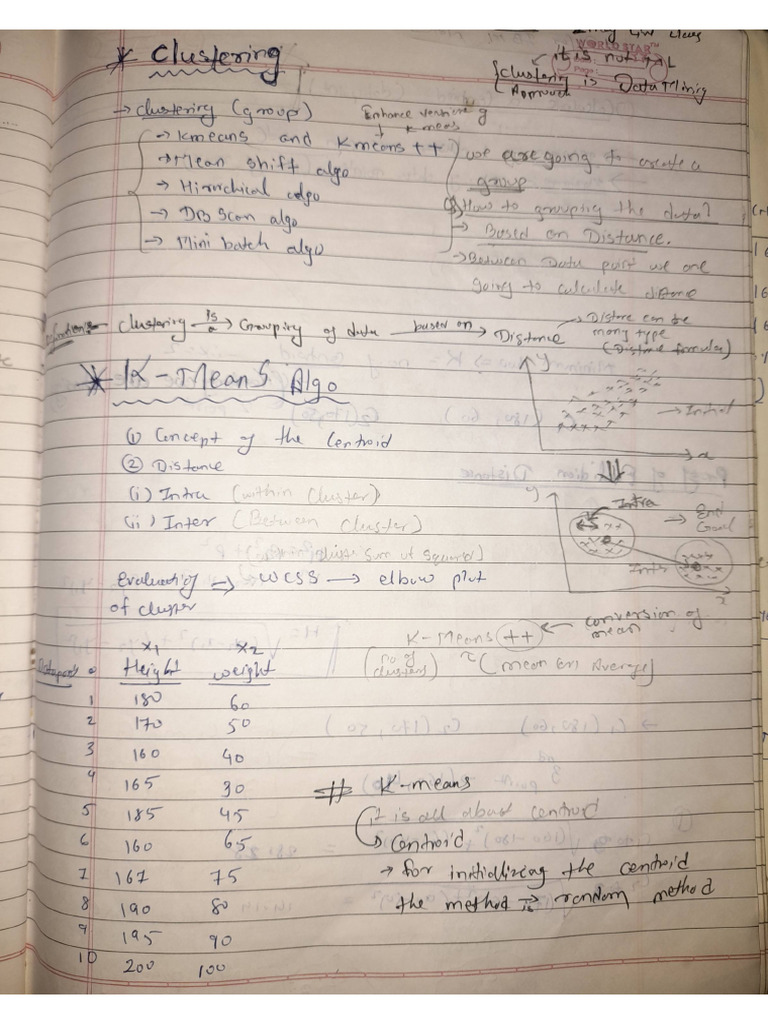 * Clustering
WORLD STAR
it is not
{ Clustering is Data Mining
Approach
→ clustering (group)
Enhance version of
k meas
→ kmeans and Kmeans ++
→ Mean shift algo
→ Hirarchical algo
→ DB Scan algo
→ Mini batch algo
we are going to create a
group
How to grouping the data?
→ Based on Distance.
→ Between Data part we are
going to calculate distance
Clustering is a → Grouping of data based on → Distance
→ Distace can be
many type
(Distance formulas)
* K-Means Algo
y
→ Initial
x
① Concept of the Centroid
② Distance
(i) Intra (within Cluster)
(ii) Inter (Between Cluster)
y
Intra
→ End
Goal
Inter
x
Evaluating ⇒ WCSS → elbow plot
of cluster
K-Means ++ ← conversion of
mean
(no of
clusters)
(mean or, Average)
x1 x2
Height weight
1 180 60
2 170 50
3 160 40
4 165 30
5 185 45
6 160 65
7 167 75
8 190 80
9 195 90
10 200 100
# K-means
it is all about centroid
→ Centroid
→ for initializing the centroid
the method is → random method